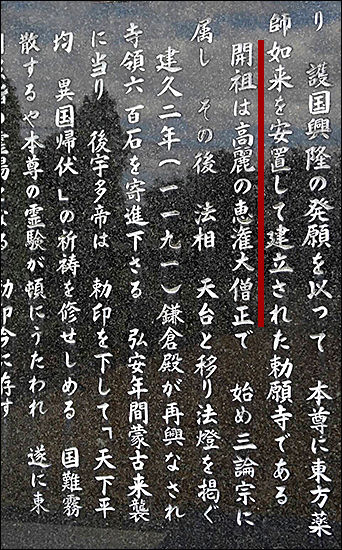 り 護国興隆の発願を以って 本尊に東方薬
師如来を安置して建立された勅願寺である
開祖は高麗の恵潅大僧正で 始め三論宗に
属し その後 法相 天台と移り法燈を掲ぐ
建久二年(一一九一)鎌倉殿が再興なされ
寺領六百石を寄進下さる 弘安年間蒙古来襲
に当り 後宇多帝は 勅印を下して「天下平
均 異国帰伏」の祈祷を修せしめる 国難霧
散するや本尊の霊験が頓にうたわれ 遂に東